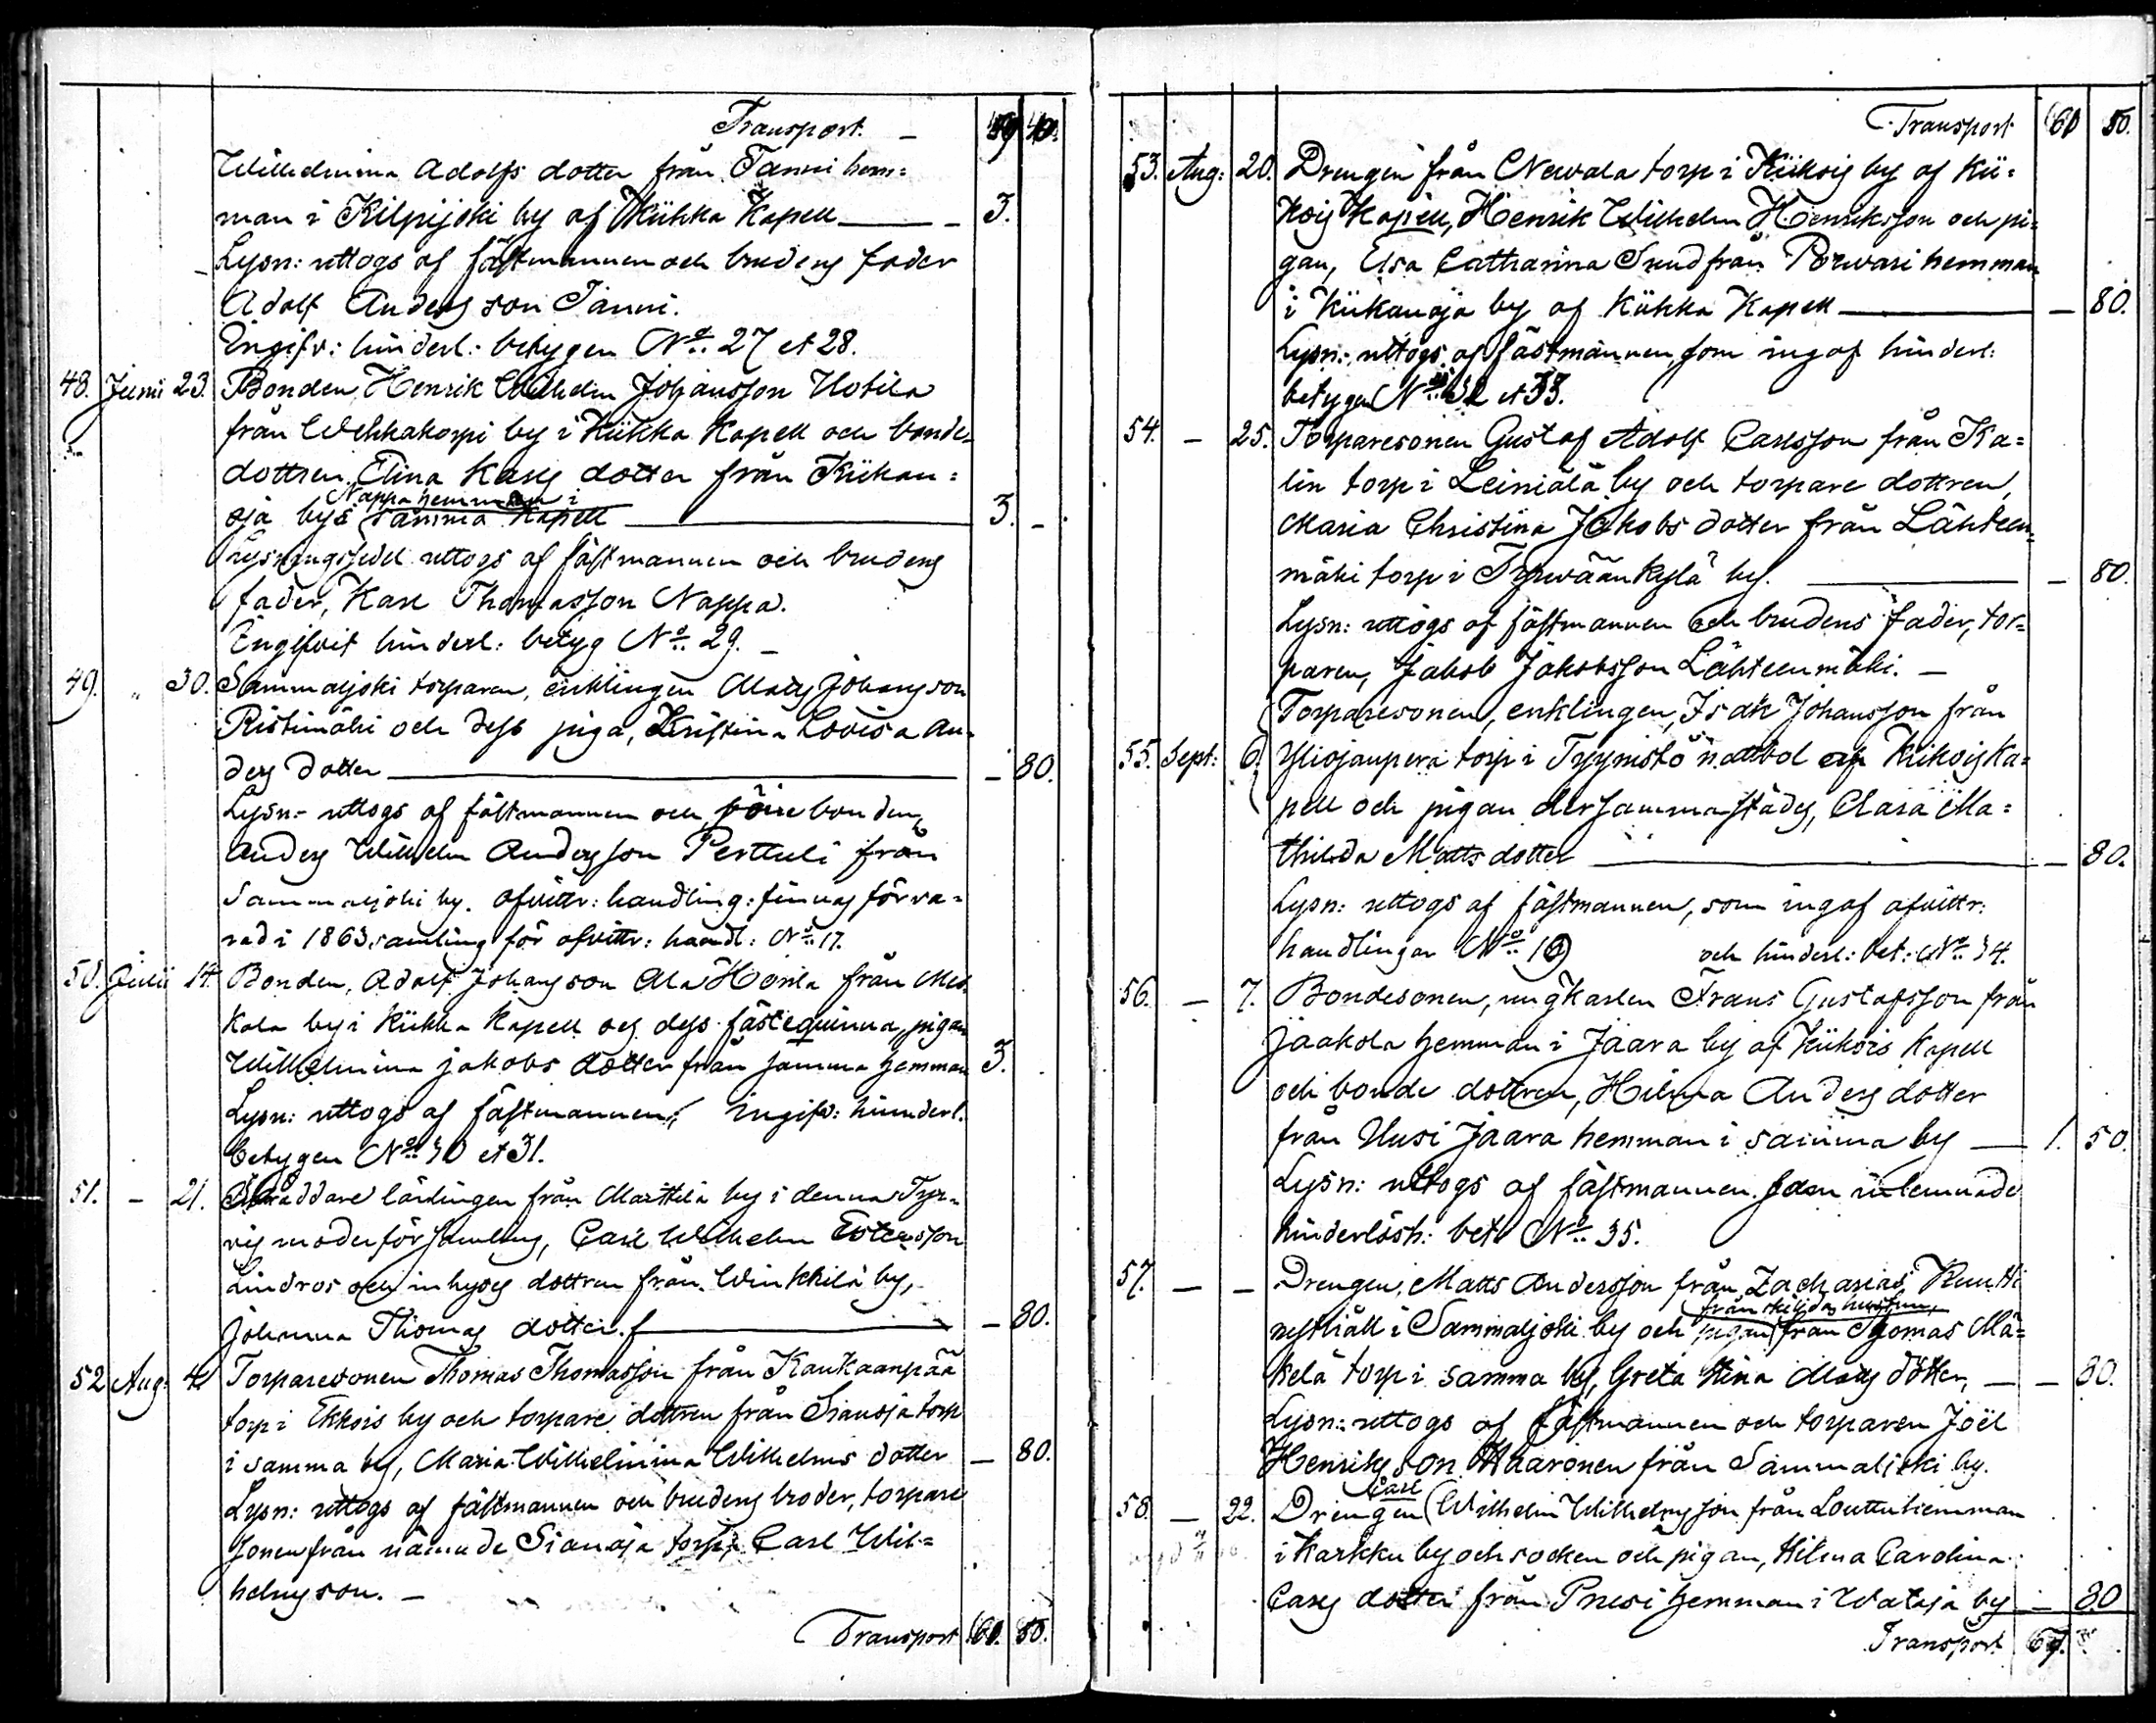 Transport. — 59 40.
Willhelmina Adolfs dotter från Tanni hem=
man i Kilpijoki by af Kiikka Kapell — 3.
Lysn: uttogs af fästmannen och brudens fader
Adolf Anders son Tanni.
Ingifv: hinderl: betygen No. 27 et 28.
48. Juni 23. Bonden Henrik Wilhelm Johansson Uotila
från Wehkakorpi by i Kiikka Kapell och bonde
dottren, Stina Karls dotter från Kiikan=
Nappa hemman i
oja by samma Kapell — 3. -
Lysningssedel uttogs af fästmannen och brudens
fader, Karl Thomasson Nappa.
Ingifvit hinderl: betyg No. 29. —
49. " 30. Sammaljoki torparen, enklingen Matts Johansson
Ristimäki och dess piga, Kristina Lovisa An-
ders dotter — - 80.
Lysn: uttogs af fästmannen och bonden,
Anders Willhelm Andersson Perttuli från
Sammaljoki by. Afvittr: handling: finnas förva=
rad i 1863 samling för afvittr: handl: No. 17.
50. Julii 14. Bonden, Adolf Johansson Ala Honla från Mes
kala by i Kiikka Kapell och dess fästeqvinna, pigan
Willhelmina Jakobs dotter från samma hemman 3.
Lysn: uttogs af fästmannen; ingifv: hinderl.
betygen No. 30 et 31.
51. — 21. Skräddare lärlingen från Marttila by i denna Tyr=
vis moderförsamling, Carl Wilhelm Estersson
Lindros och inhyses dottren från Winkkilä by,
Johanna Thomas dotter. — - 80.
52 Aug: 4 Torparesonen Thomas Thomasson från Kaukaanpää
torp i Ekkois by och torpare dottren från Sianoja torp
i samma by, Maria Willhelmina Willhelms dotter — 80.
Lysn: uttogs af fästmannen och brudens broder, torpare
sonen från nämnde Sianoja torp, Carl Wil=
helmsson. —
Transport 61. 50.
Transport 61 50.
53. Aug: 20. Drengen från Newala torp i Kiikois by af Kii=
kois Kapell, Henrik Wilhelm Henriksson och pi=
gan, Elsa Catharina Sund från Porvari hemman
i Kiikanoja by af Kiikka Kapell — — 80.
Lysn: uttogs af fästmannen, som ingaf hinderl:
betygen No. 32 et 33.
54. — 25. Torparesonen Gustaf Adolf Carlsson från Ka=
lin torp i Leiniälä by och torpare dottren,
Maria Christina Jakobs dotter från Lähteen=
mäki torp i Tyrwäänkylä by. — — 80.
Lysn: uttogs af fästmannen och brudens fader, tor=
paren, Jakob Jakobsson Lähteenmäki. —
Torparesonen, enklingen, Isak Johansson från
55. Sept: 6. Yliojanperä torp i Tyynistö nattbol af Kiikois Ka=
pell och pigan dersammastädes, Clara Ma=
thilda Matts dotter — — 80.
Lysn: uttogs af fästmannen, som ingaf afvittr:
handlingar No. 19 och hinderl: bet: No. 34.
56. — 7. Bondesonen, ungkarlen Frans Gustafsson från
Jaakola hemman i Jaara by af Kiikois Kapell
och bonde dottren, Hilma Anders dotter
från Uusi Jaara hemman i samma by — 1. 50.
Lysn: uttogs af fästmannen som inlemnade
hinderlösh: bet: No. 35.
57. — — Drengen, Matts Andersson från Zacharias Knutti
från skiljda hustrun,
nyttiäll i Sammaljoki by och pigan från Thomas Mä=
kelä torp i samma by, Greta Stina Matts dotter, — — 80.
Lysn: uttogs af fästmannen och torparen Joël
Henriksson Haaronen från Sammaljoki by.
Carl
58. — 22. Drengen Wilhelm Willhelmsson från Louttu hemman
i Karkku by och socken och pigan, Hilma Carolina
Carls dotter från Prusi hemman i Wataja by — 80
Transport 67.